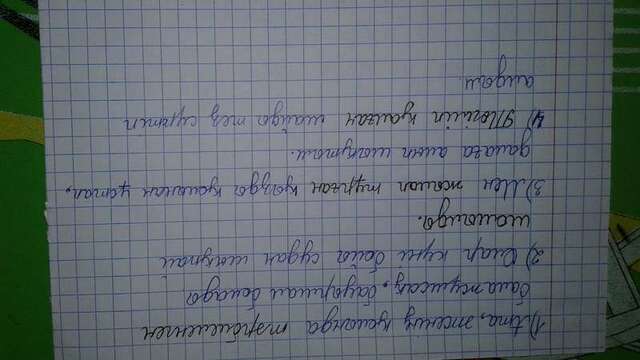 1) Ата, әженің қолында тәрбиеленген
бала жұмсақ, бауырмал болады
2) Олар күні бойы судан шықпай
шомылды.
3) Мен жылап тұрған қызды қолынан ұстап,
далаға алып шықтым.
4) Төгіліп қалған майды тез сүртіп
алдым.